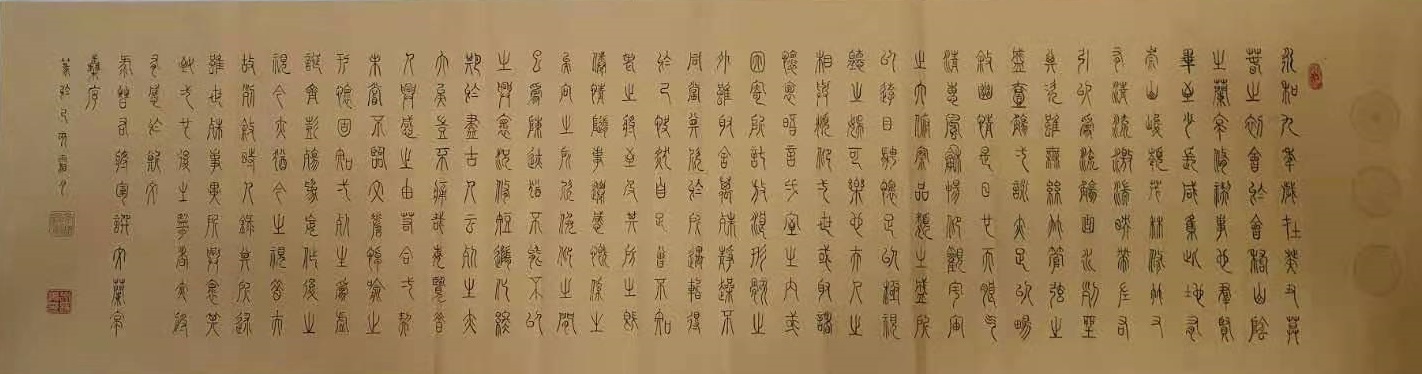 永和九年歲在癸丑暮
春之初會於會稽山陰
之蘭亭脩禊事也羣賢
畢至少長咸集此地有
崇山峻領茂林脩竹又
有清流激湍暎帶左右
引以為流觴曲水列坐
其次雖無絲竹管弦之
盛壹觴弌詠亦足以暢
敘幽情是日也天朗气
清惠風和暢仰觀宇宙
之大俯察品類之盛所
以遊目騁懷足以極視
聽之娛可樂也夫人之
相與俯仰弌世或取諸
懷抱晤言弌室之內或
因寄所託放浪形骸之
外雖取舍萬殊靜躁不
同當其欣於所遇暫得
於己怏然自足曾不知
老之將至及其所之既
倦情隨事遷感慨係之
矣向之所欣俛仰之間
已為陳迹猶不能不以
之興懷況脩短隨化終
期於盡古人云死生亦
大矣豈不痛哉每覽昔
人興感之由若合弌契
未嘗不臨文嗟悼喻之
於懷固知弌死生為虛
誕齊彭殤為妄作後之
視今亦猶今之視昔夫
故列敘時人錄其所述
雖世殊事異所興懷其
致弌也後之覽者亦將
有感於斯文
右將軍譔文蘭亭
序
篆於己